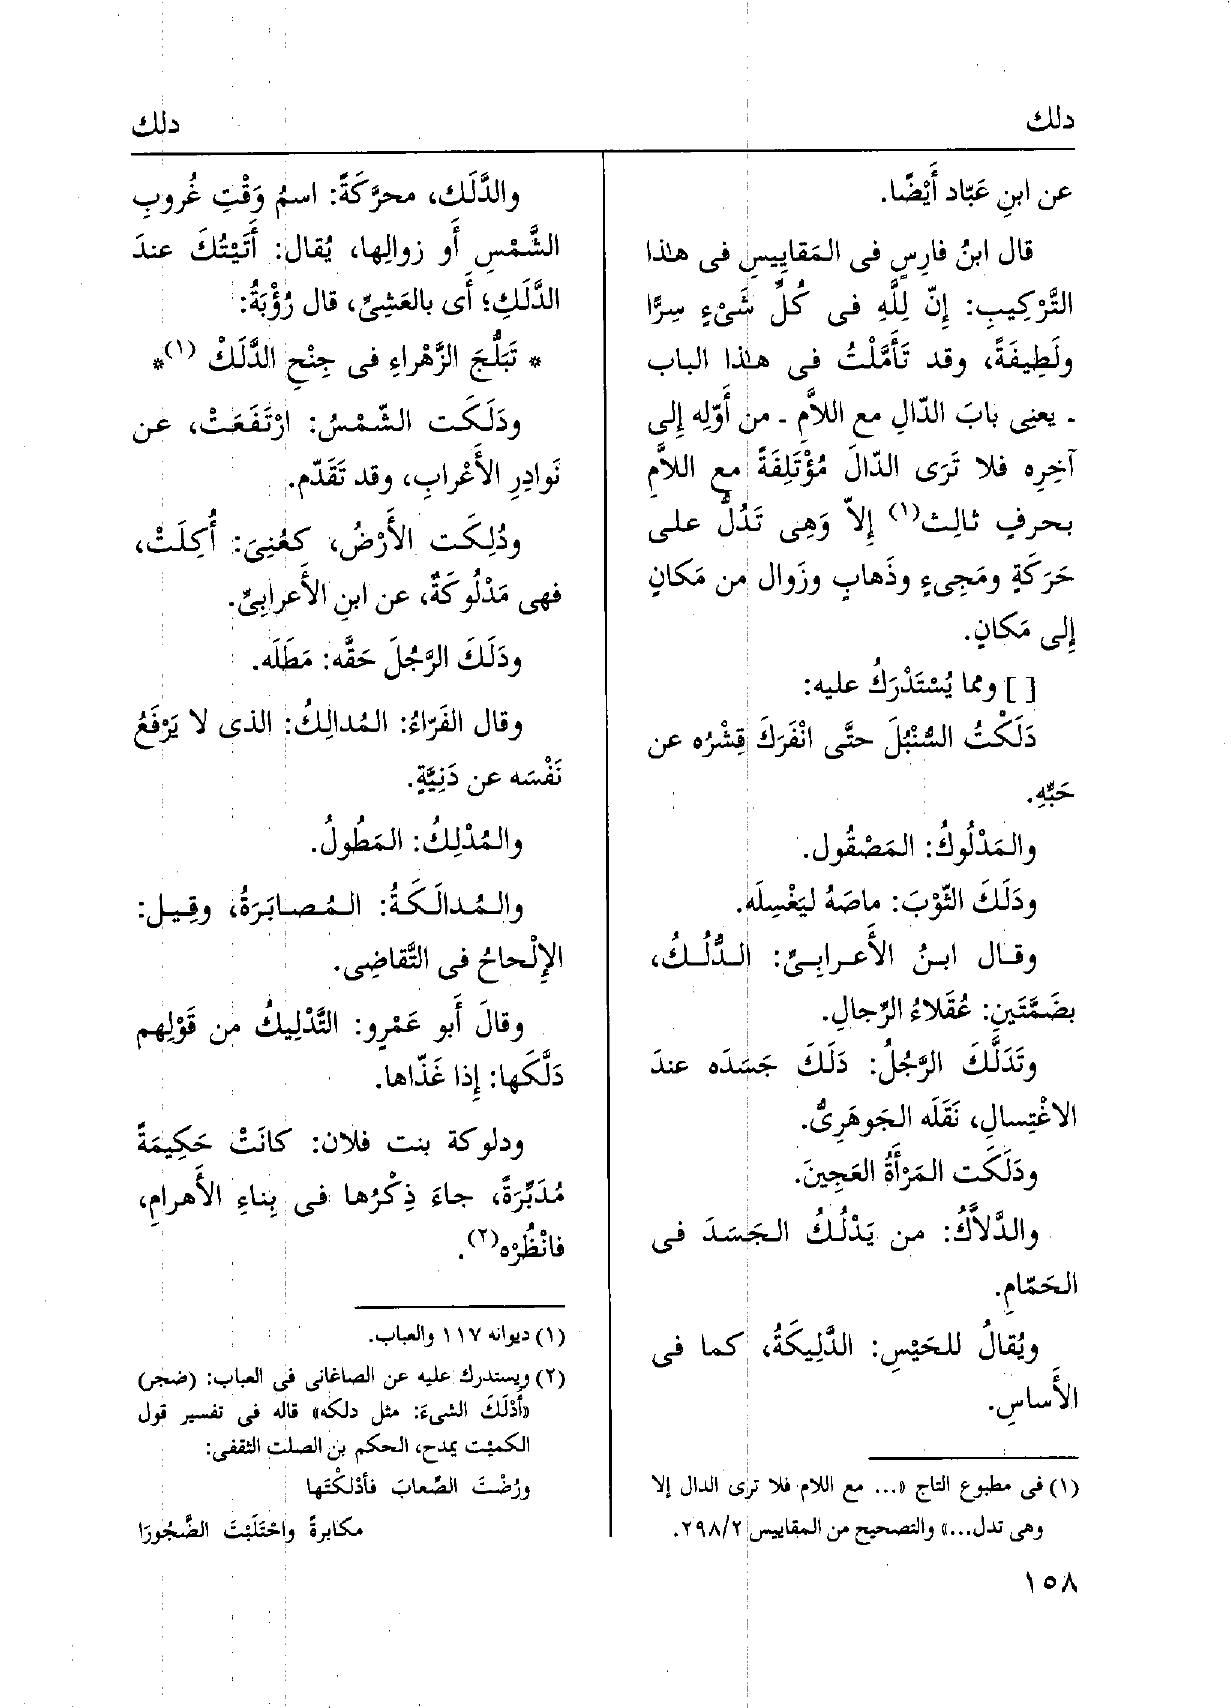 دلك
دلك
عن ابنِ عَبّاد أَيْضًا.
قال ابنُ فارِسٍ فى المَقايِيسِ فى هٰذا
التَّرْكِيبِ: إِنّ لِلَّهِ فى كُلِّ شَىْءٍ سِرًّا
ولَطِيفَةً، وقد تَأَمَّلْتُ فى هٰذا الباب
ـ يعنى بابَ الدّالِ مع اللاَّمِ ـ من أَوّلِه إِلى
آخِرِه فلا تَرَى الدّالَ مُؤْتَلِفَةً مع اللاَّمِ
بحرفٍ ثالِث(١) إِلاّ وَهِى تَدُلُّ على
حَرَكَةٍ ومَجِىءٍ وذَهابٍ وزَوال من مَكانٍ
إِلى مَكانٍ.
[ ] ومما يُسْتَدْرَكُ عليه:
دَلَكْتُ السُّنْبُلَ حتَّى انْفَرَكَ قِشْرُه عن
حَبِّهِ.
والمَدْلُوكُ: المَصْقُول.
ودَلَكَ الثَّوْبَ: ماصَهُ ليَغْسِلَه.
وقال ابنُ الأَعرابِىِّ: الدُّلُكُ،
بضَمَّتَينِ: عُقَلاءُ الرِّجالِ.
وتَدَلَّكَ الرَّجُلُ: دَلَكَ جَسَدَه عندَ
الاغْتِسالِ، نَقَلَه الجَوهَرِىُّ.
ودَلَكَت المَرْأَةُ العَجِينَ.
والدَّلاَّكُ: من يَدْلُكُ الجَسَدَ فى
الحَمّامِ.
ويُقالُ للحَيْسِ: الدَّلِيكَةُ، كما فى
الأَساسِ.
(١) فى مطبوع التاج «... مع اللام فلا ترى الدال إلا
وهى تدل...» والتصحيح من المقاييس ٢٩٨/٢.
١٥٨
والدَّلَك، محرَّكَةً: اسمُ وَقْتِ غُروبِ
الشَّمْسِ أَو زوالِها، يُقال: أَتَيْتُكَ عندَ
الدَّلَكِ؛ أَى بالعَشِىِّ، قال رُؤْبَةُ:
* تَبَلُّجَ الزَّهْراءِ فى جِنْحِ الدَّلَكْ (١)*
ودَلَكَت الشّمْسُ: ارْتَفَعَتْ، عن
نَوادِرِ الأَعْرابِ، وقد تَقَدّم.
ودُلِكَت الأَرْضُ، كعُنِىَ: أُكِلَتْ،
فهى مَدْلُوكَةٌ، عن ابنِ الأَعرابِىِّ.
ودَلَكَ الرَّجُلَ حَقَّه: مَطَلَه.
وقال الفَرّاءُ: المُدالِكُ: الذى لا يَرْفَعُ
نَفْسَه عن دَنِيَّةٍ.
والمُدْلِكُ: المَطُولُ.
والمُدالَكَةُ: المُصابَرَةُ، وقِيل:
الإِلْحاحُ فى التَّقاضِى.
وقالَ أَبو عَمْرٍو: التَّدْلِيكُ من قَوْلِهم
دَلَّكَها: إِذا غَذّاها.
ودلوكة بنت فلان: كانَتْ حَكِيمَةً
مُدَبِّرَةً، جاءَ ذِكْرُها فى بِناءِ الأَهرامِ،
فانْظُرْه(٢).
(١) ديوانه ١١٧ والعباب.
(٢) ويستدرك عليه عن الصاغانى فى العباب: (ضجر)
«أَدْلَكَ الشىءَ: مثل دلكه» قاله فى تفسير قول
الكميت يمدح، الحكم بن الصلت الثقفى:
ورُضْتَ الصِّعابَ فأدْلَكْتَها
مكابرةً واحْتَلَبْتَ الضَّجُورَا